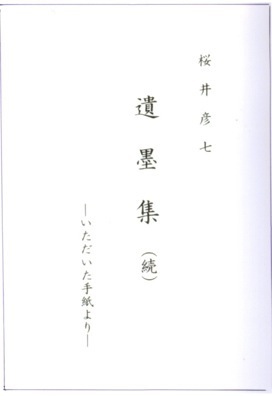 桜井彦七
遺墨集(続)
―いただいた手紙より―